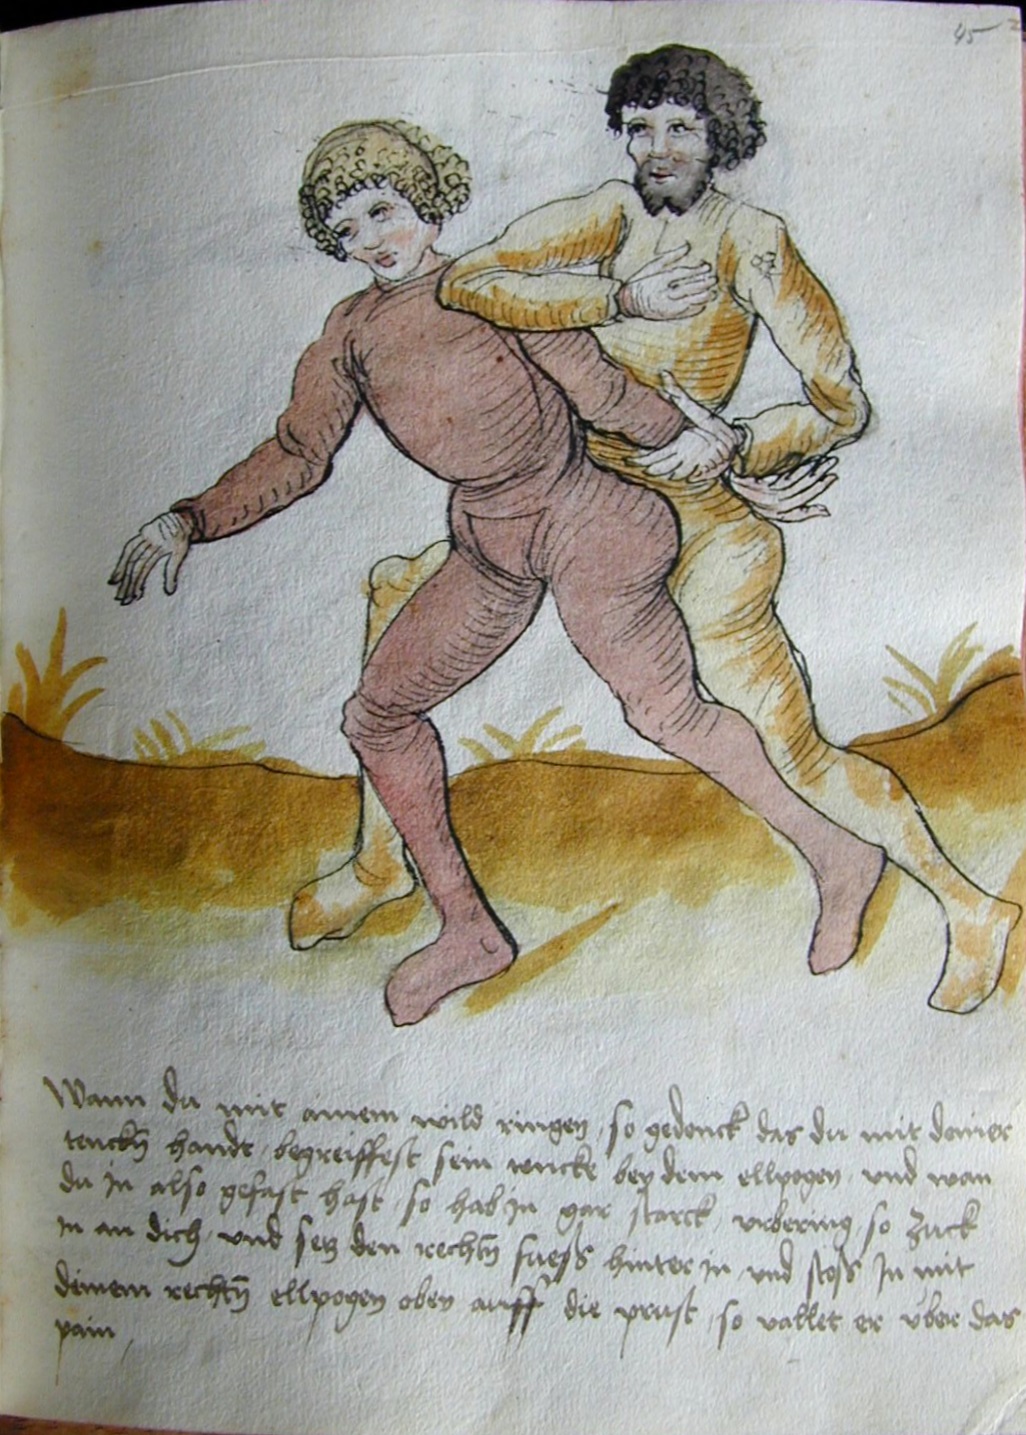 45
Wann du mit ainem wild ringen / so gedenck das du mit deiner
tenckn̄ handt / begreiffest sein rencke bey dem ellpogen / und wan
du in also gefast hast / so hab in gar starck / urbering so zuck
in an dich / und setz den rechtn̄ fuess hinter in und stoss in mit
deinem rechtn̄ ellpogen oben auff die prust / so vallet er uber das
pain /